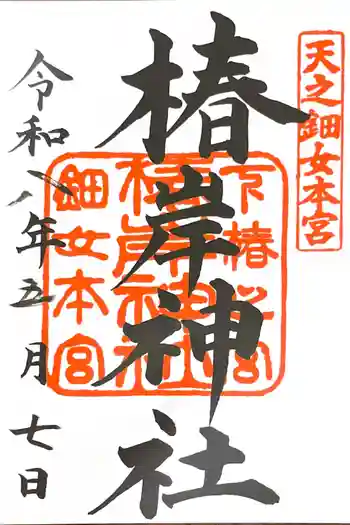 天之鈿女本宮
椿岸神社
下椿さ宮
椿岸神社
鈿女本宮
令和八年五月七日